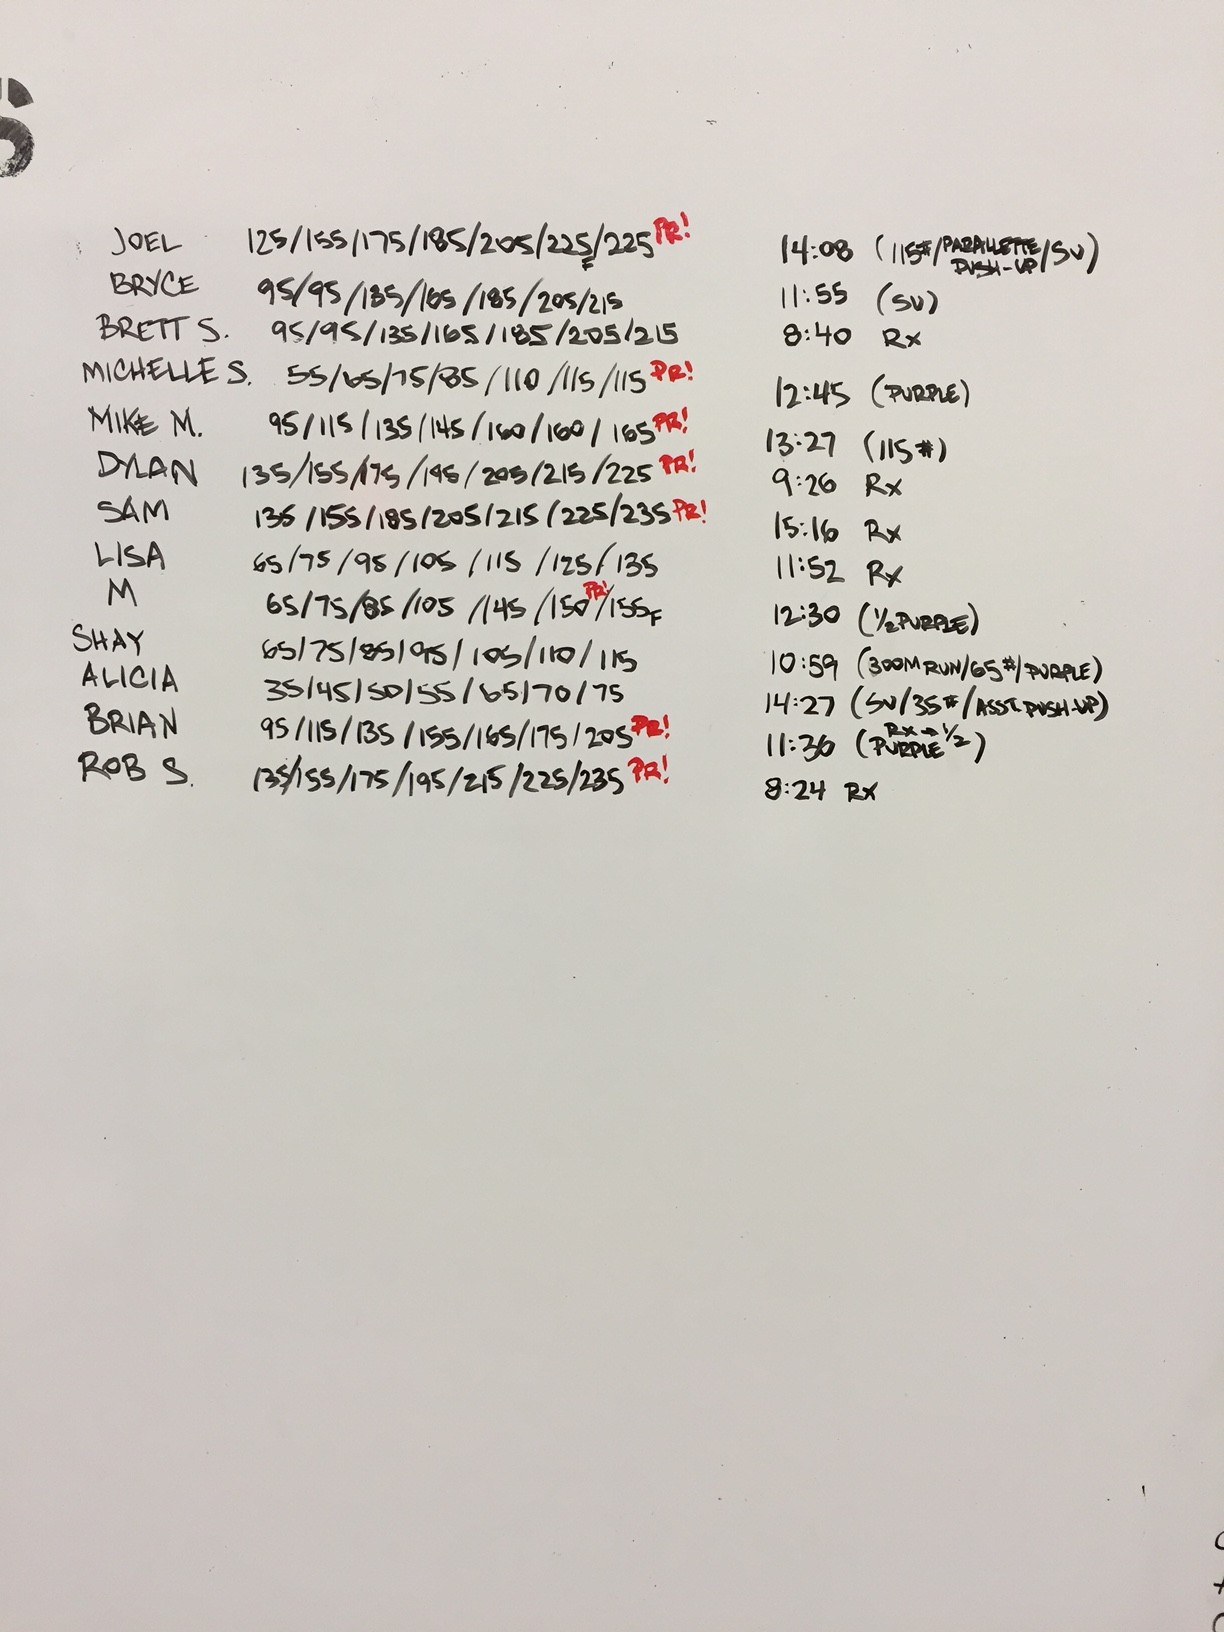 S
JOEL 125/155/175/185/205/225F/225 PR! 14:08 (115#/PARALLETTE PUSH-UP/SU)
BRYCE 95/95/135/165/185/205/215 11:55 (SU)
BRETT S. 95/95/135/165/185/205/215 8:40 Rx
MICHELLE S. 55/65/75/85/110/115/115 PR! 12:45 (PURPLE)
MIKE M. 95/115/135/145/160/160/165 PR! 13:27 (115#)
DYLAN 135/155/175/195/205/215/225 PR! 9:26 Rx
SAM 135/155/185/205/215/225/235 PR! 15:16 Rx
LISA 65/75/95/105/115/125/135 11:52 Rx
M 65/75/85/105/145/150 PR!/155F 12:30 (1/2 PURPLE)
SHAY 65/75/85/95/105/110/115 10:59 (300M RUN/65#/PURPLE)
ALICIA 35/45/50/55/65/70/75 14:27 (SU/35#/ASST. PUSH-UP)
BRIAN 95/115/135/155/165/175/205 PR! 11:36 (RX → 1/2 PURPLE)
ROB S. 135/155/175/195/215/225/235 PR! 8:24 Rx